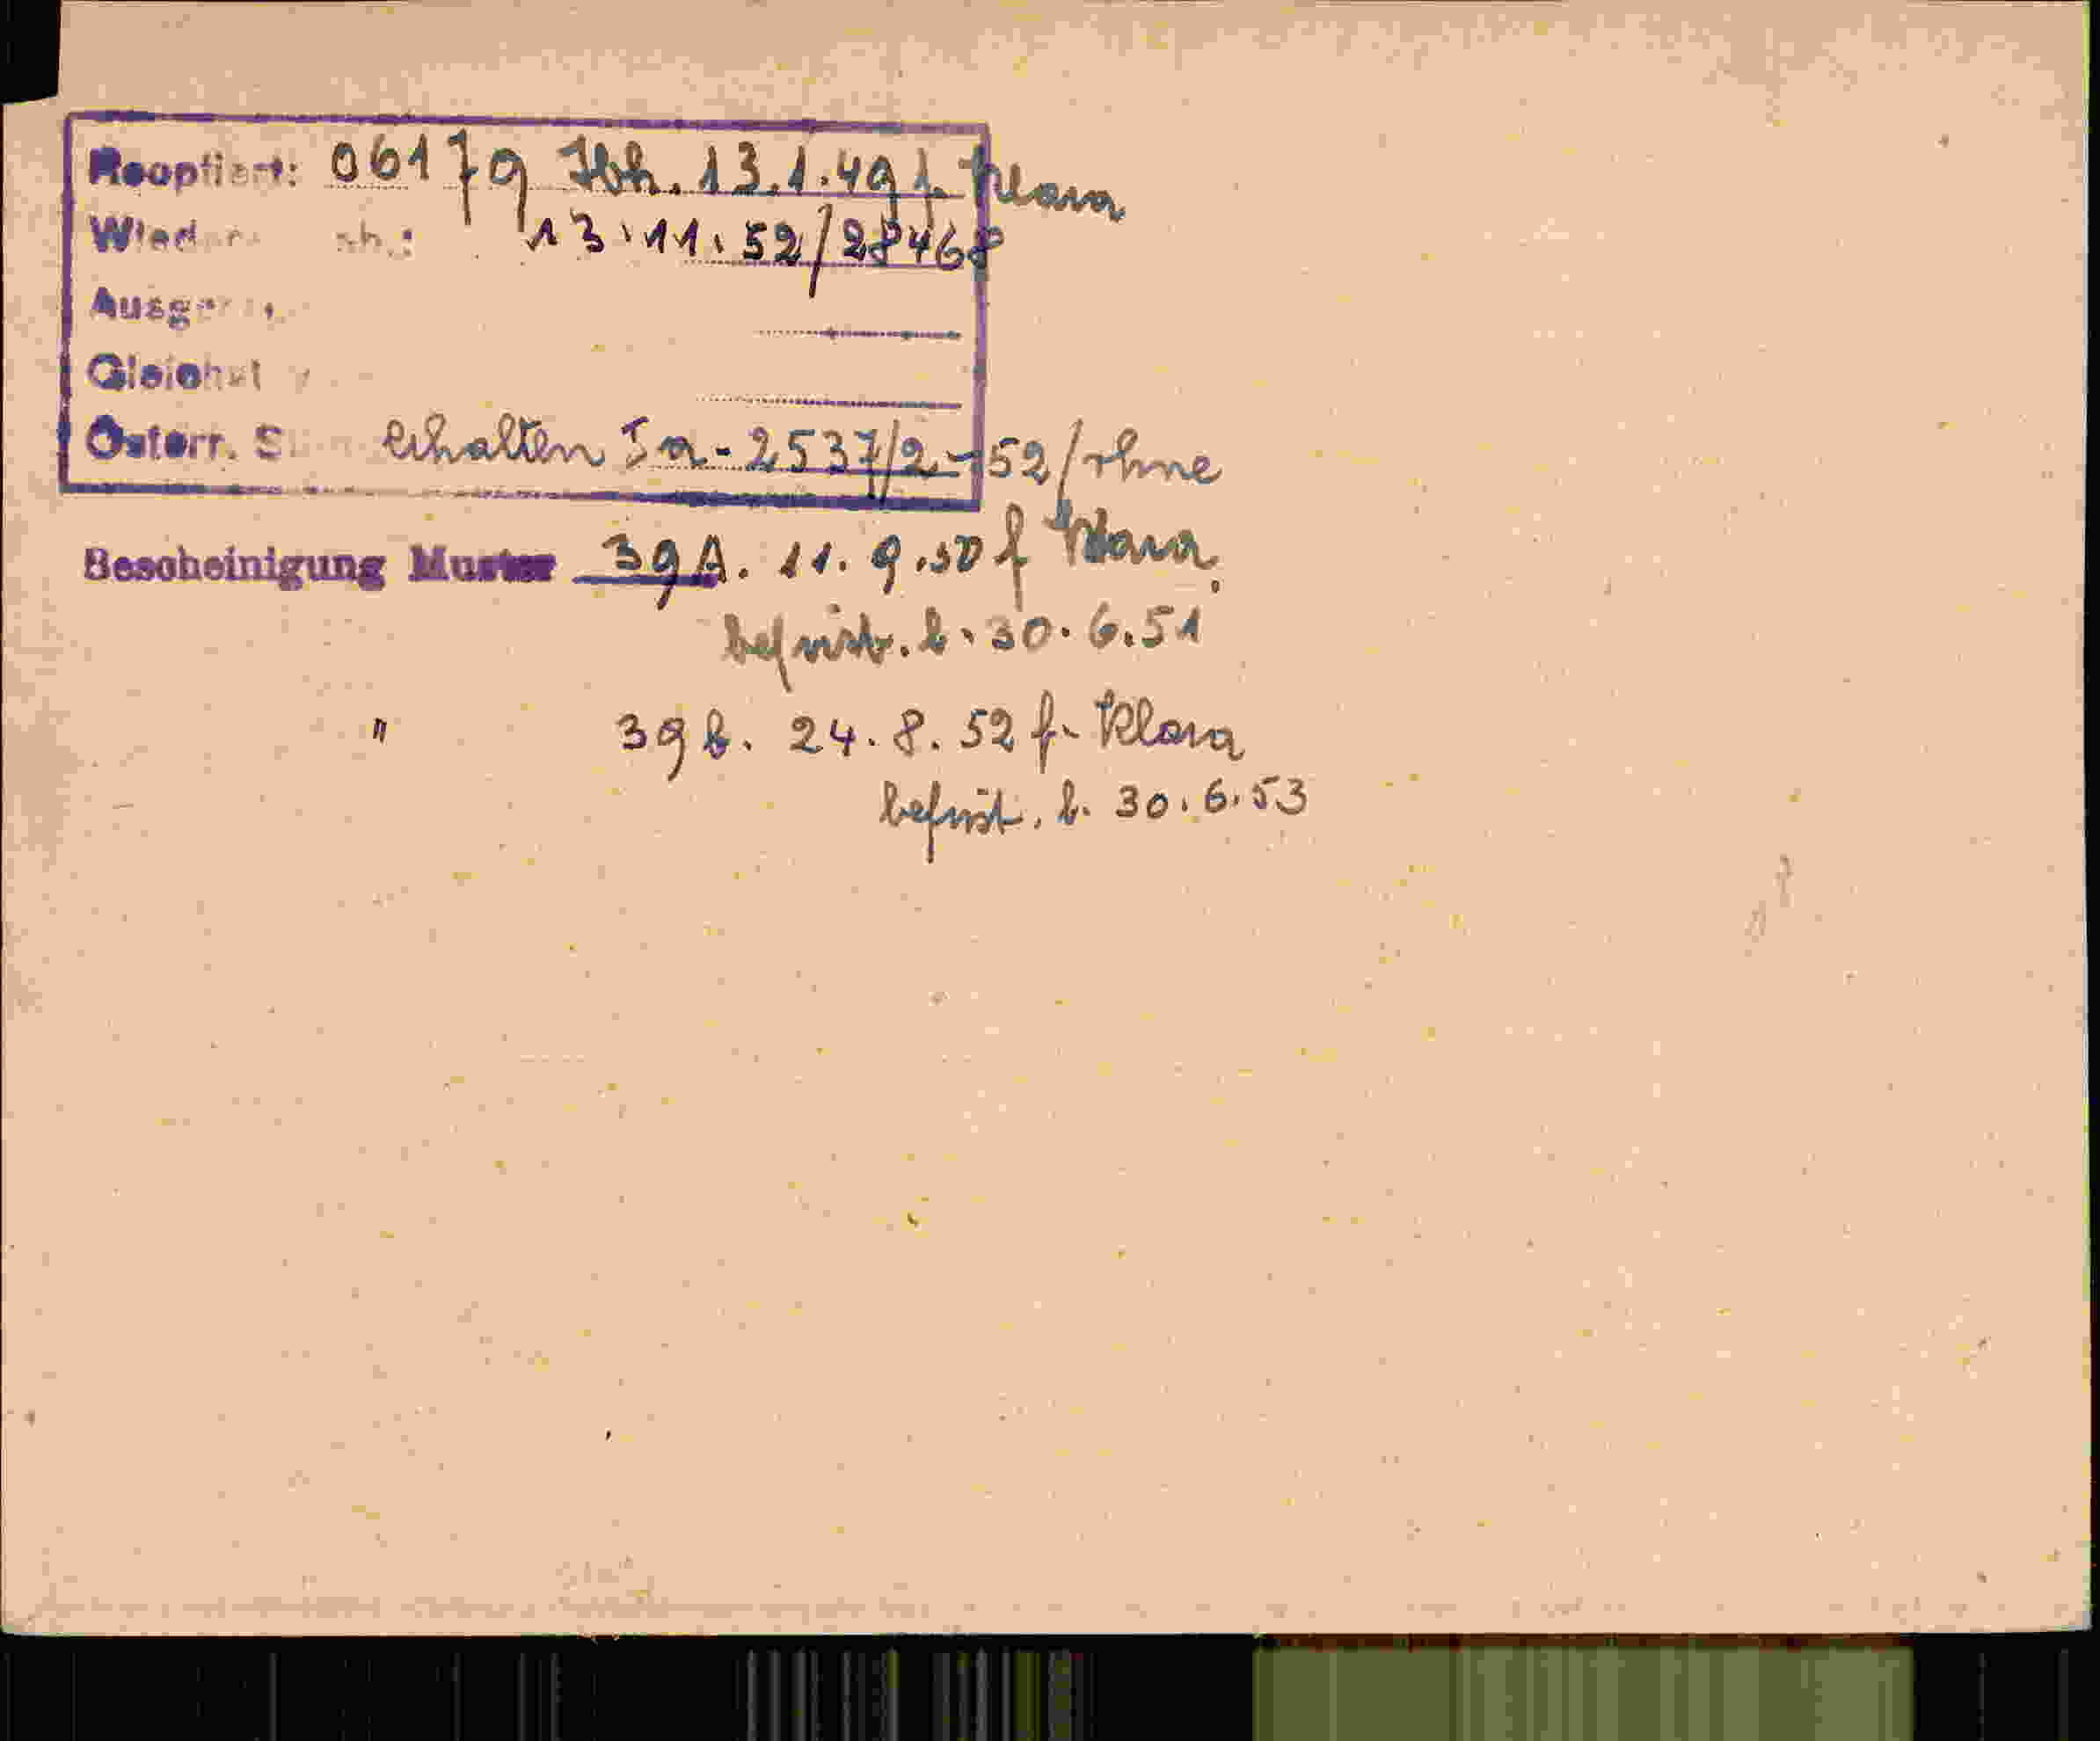 Reoptiert: 06179 Ibk. 13.1.49 f. Klara
13.11.52/28468
Österr. S erhalten Ia-2537/2-52/ohne
Bescheinigung Muster 39A. 11.9.50 f Klara,
befrist. b. 30.6.51
" 39b. 24.8.52 f. Klara
befrist. b. 30.6.53